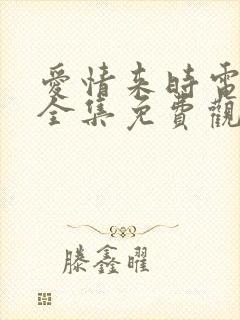 愛情來時電
全集免費觀
滕鑫曜